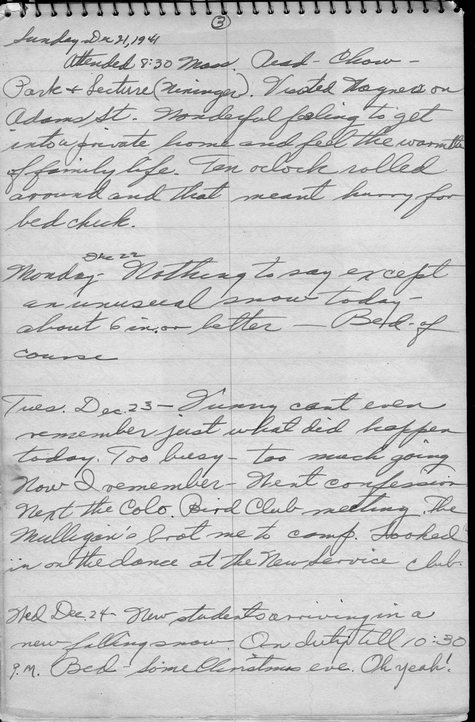 3
Sunday Dec 21, 1941
Attended 8:30 Mass. Read - Chow -
Park & Lecture (Nininger). Visited Wagners on
Adams St. Wonderful feeling to get
into a private home and feel the warmth
of family life. Ten oclock rolled
around and that meant hurry for
bed check.
Dec 22
Monday - Nothing to say except
an unusual snow today -
about 6 in. or better - Bed - of
course
Tues. Dec. 23 - Funny cant even
remember just what did happen
today. Too busy - too much going
Now I remember - Went confession
Next the Colo. Bird Club meeting. The
Mulligan's brot me to camp. Looked
in on the dance at the New Service Club.
Wed Dec. 24 - New students arriving in a
new falling snow. On duty till 10:30
P.M. Bed - Some Christmas eve. Oh yeah!